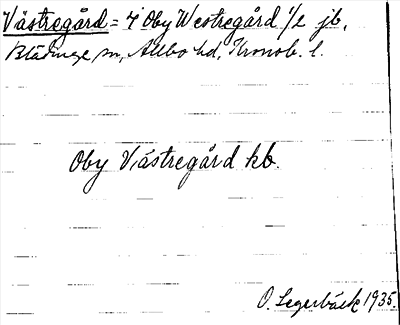 Västregård = i Oby Westregård 1/2 jb,
Blädinge sn, Allbo hd, Kronob. l.
Oby Västregård kb.
O. Segerbäck 1935.